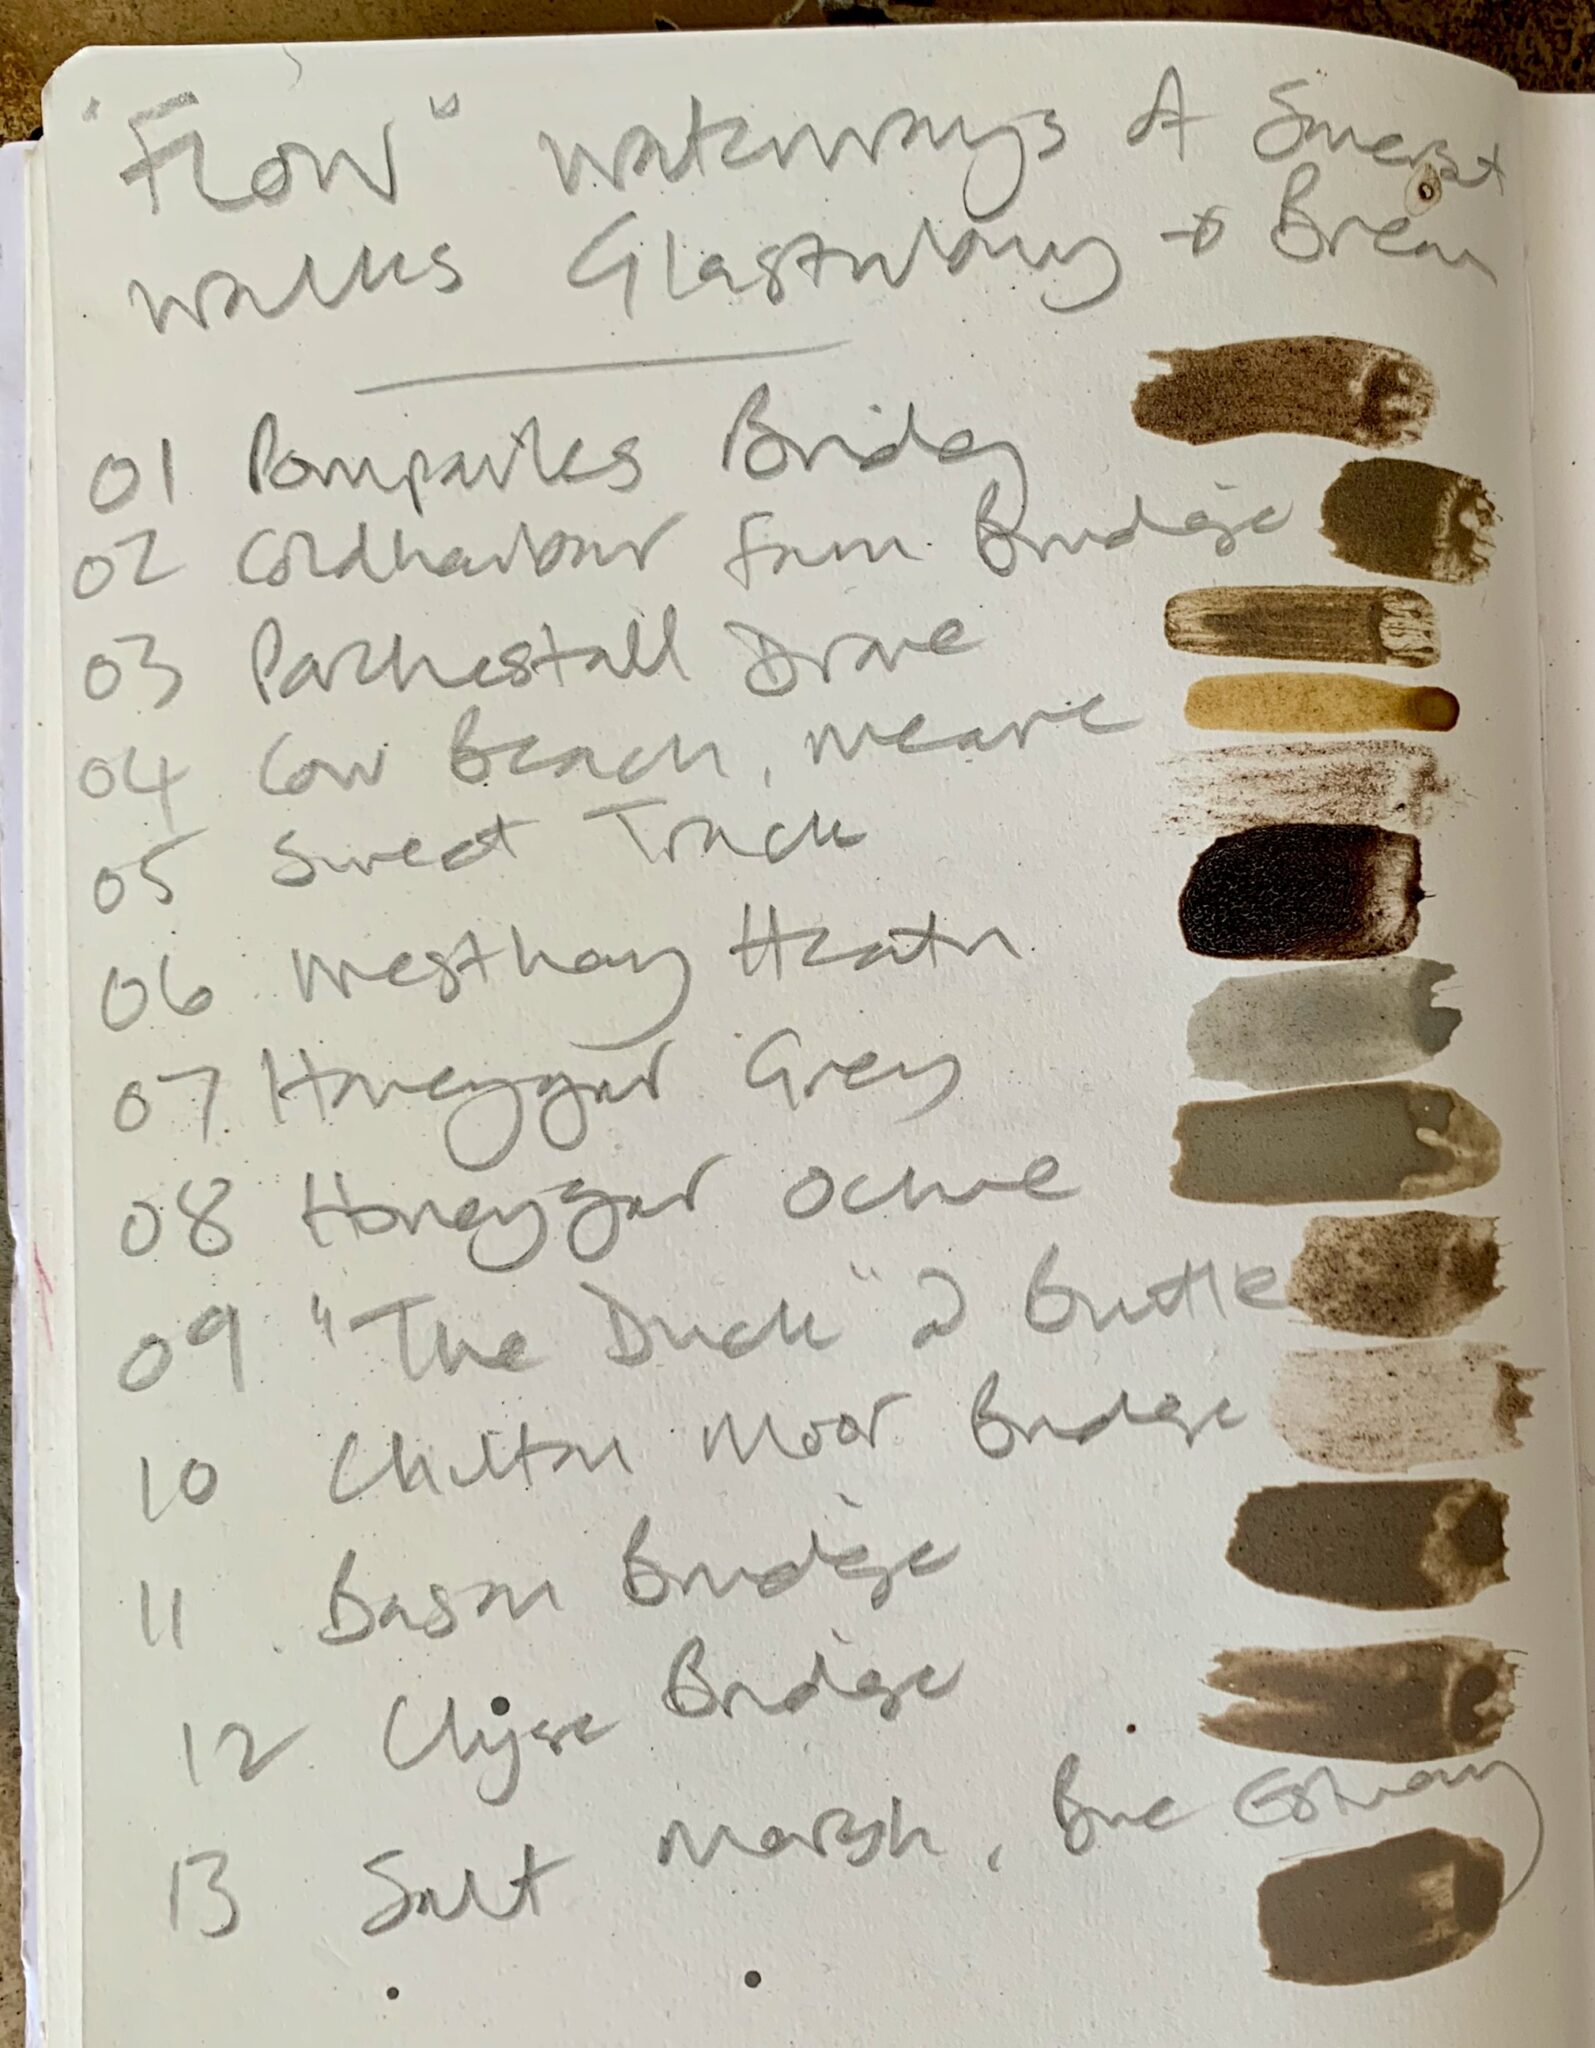 "Flow" waterways of Somerset
walks Glastonbury to Brean
01 Pomparles Bridg
02 Coldharbour Farm Bridge
03 Parchestall Drove
04 Cow Beach, Meare
05 Sweet Track
06 Westhay Heath
07 Honeygar Grey
08 Honeygar Ochre
09 "The Duck" @ Burtle
10 Chilton Moor Bridge
11 Bason Bridge
12 Clyse Bridge
13 Salt Marsh, Brue Estuary